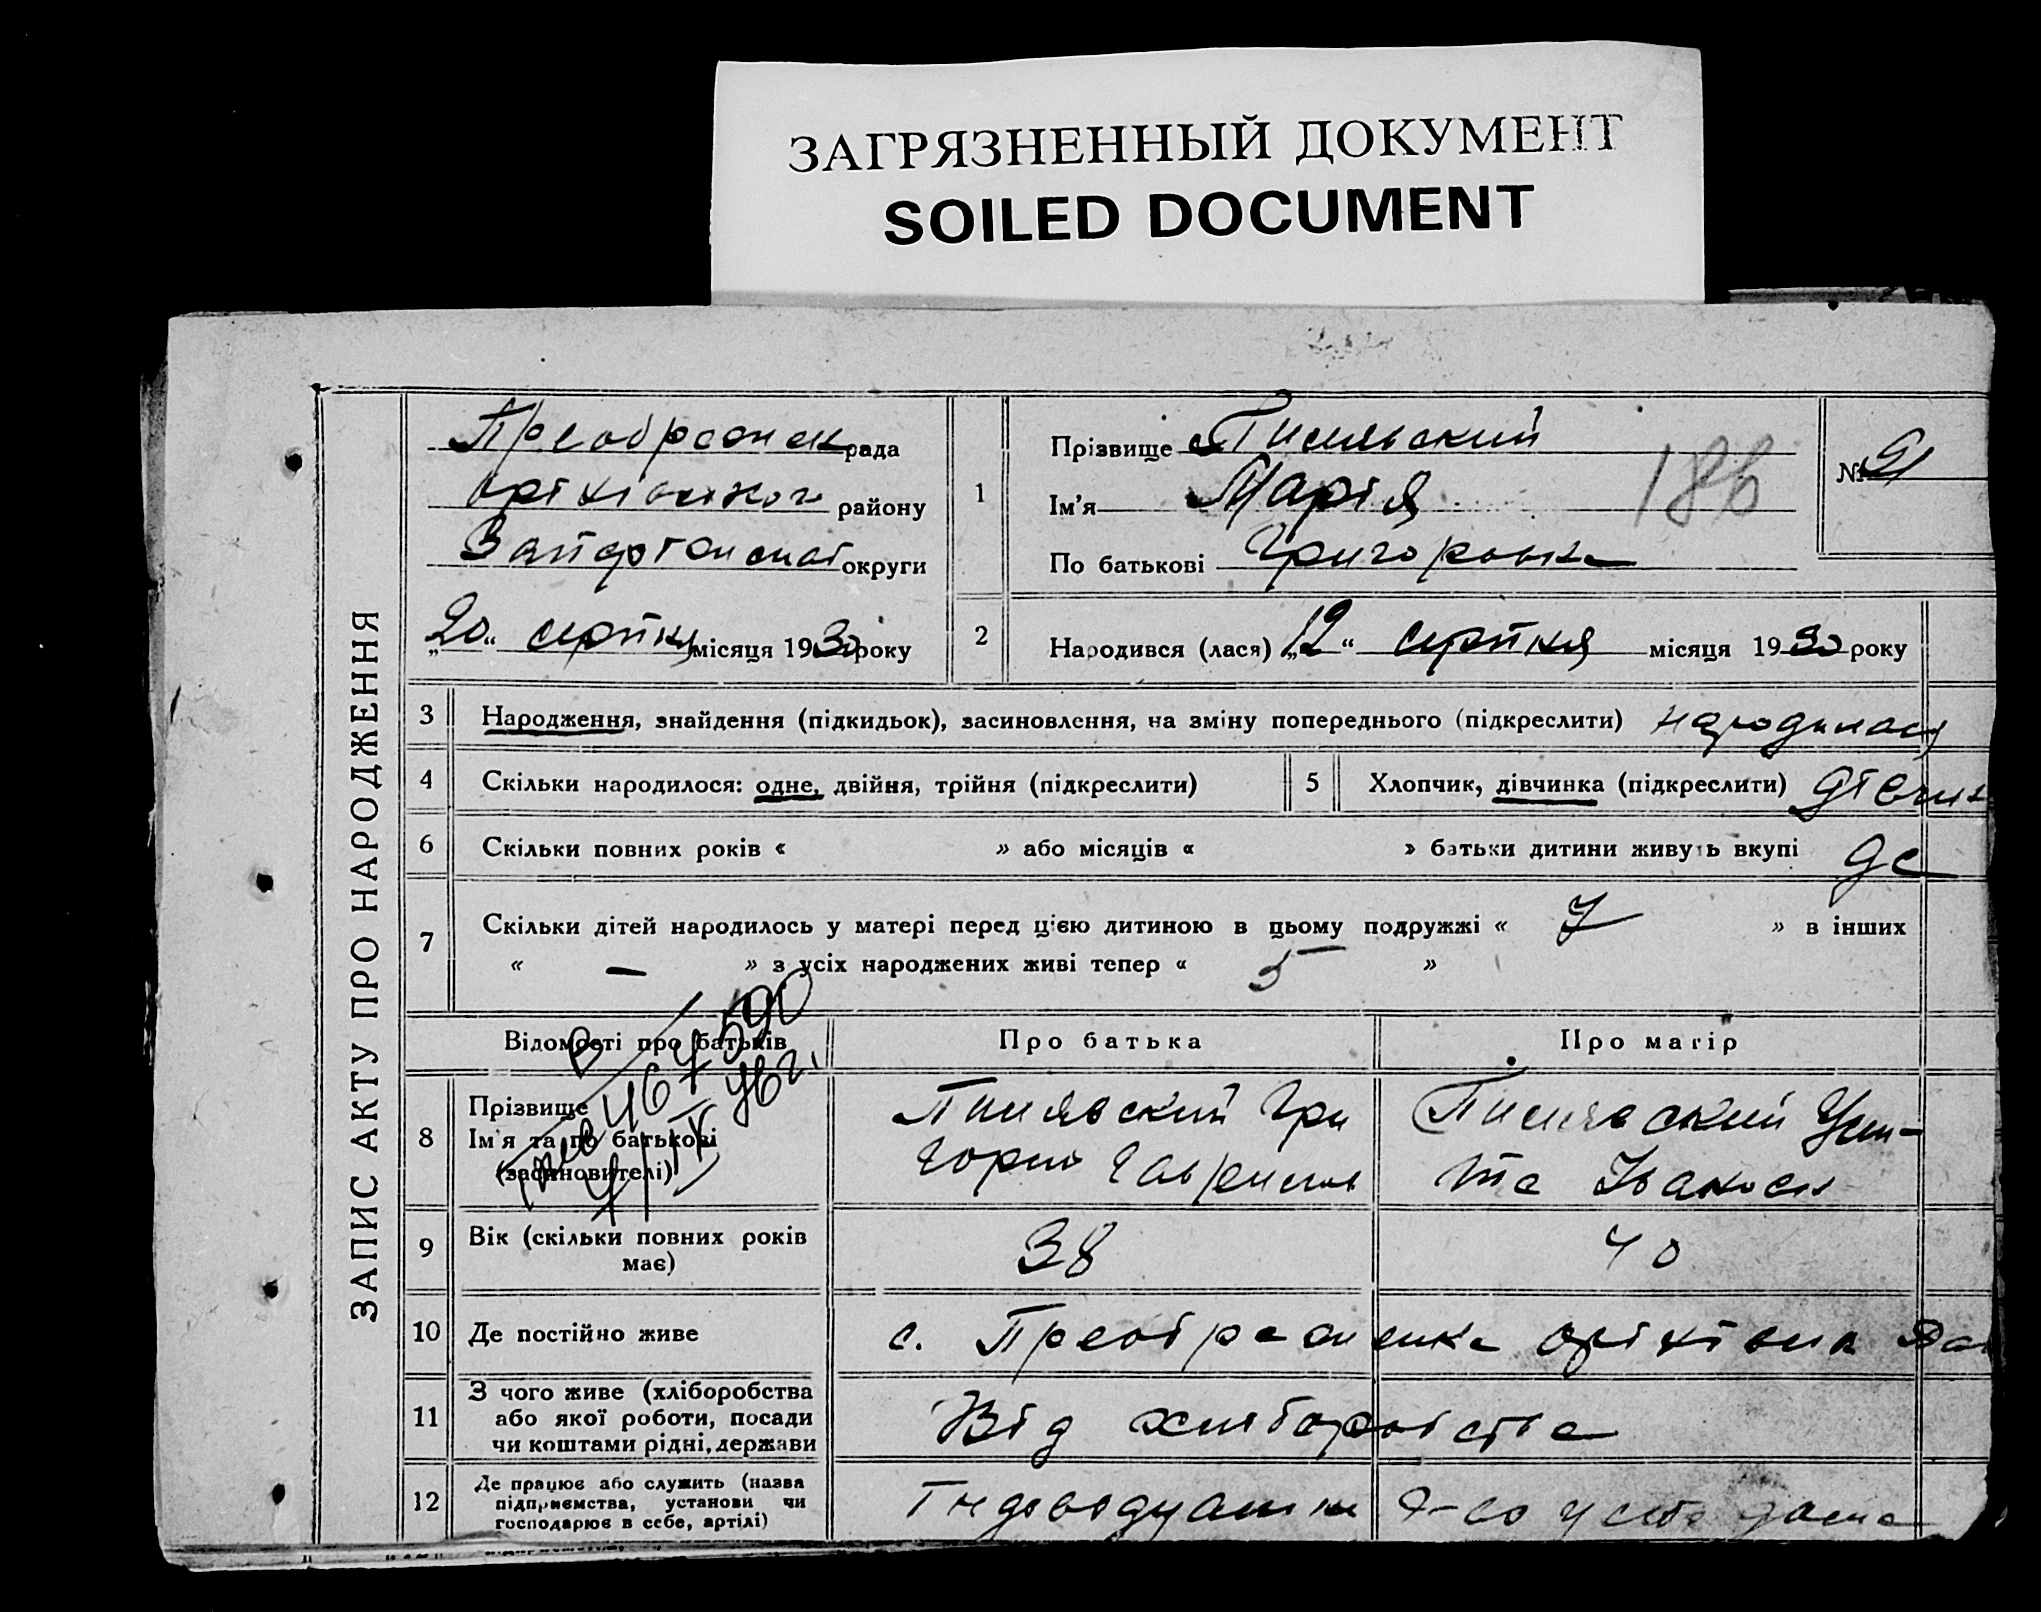 ЗАГРЯЗНЕННЫЙ ДОКУМЕНТ
SOILED DOCUMENT
ЗАПИС АКТУ ПРО НАРОДЖЕННЯ
рада
району
округи
„20“ серпня місяця 1930 року
1
Прізвище
Ім'я Марія
По батькові Григоровна
186
№ 91
2
Народився (лася) „12“ серпня місяця 1930 року
3 Народження, знайдення (підкидьок), засиновлення, на зміну попереднього (підкреслити) народилася
4 Скільки народилося: одне, двійня, трійня (підкреслити)
5 Хлопчик, дівчинка (підкреслити) дівчин
6 Скільки повних років « » або місяців « » батьки дитини живуть вкупі
7 Скільки дітей народилось у матері перед цією дитиною в цьому подружжі « 7 » в інших
« — » з усіх народжених живі тепер « 5 »
Відомості про батьків
Про батька
Про матір
8 Прізвище
Ім'я та по батькові
(засиновителі)
467590
9 Вік (скільки повних років
має)
38
40
10 Де постійно живе
с.
11 З чого живе (хліборобства
або якої роботи, посади
чи коштами рідні, держави
Від хліборобства
12 Де працює або служить (назва
підприємства, установи чи
господарює в себе, артілі)